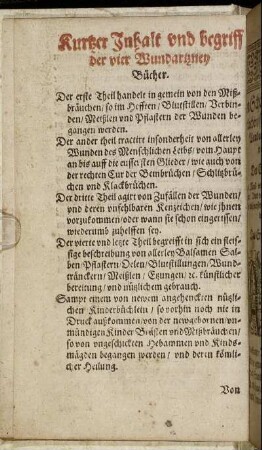 Kurtzer Inhalt vnd begriff
der vier Wundartzney
Bücher.
Der erste Theil handelt in gemein von den Miß-
bräuchen/ so im Hefften/ Blutstillen/ Verbin-
den/ Meißlen vnd Pflastern der Wunden be-
gangen werden.
Der ander theil tractirt insonderheit von allerley
Wunden des Menschlichen Leibs/ vom Haupt
an biß auff die eussersten Glieder/ wie auch von
der rechten Cur der Beinbrüchen/ Schlitzbrü-
chen vnd Klackbrüchen.
Der dritte Theil agirt von Zufällen der Wunden/
vnd deren vnfehlbaren Kenzeichen/ wie ihnen
vorzukommen/ oder wann sie schon eingerissen/
wiederumb zuhelffen sey.
Der vierte vnd letzte Theil begreifft in sich ein fleis-
sige beschreibung von allerley Balsamen Sal-
ben Pflastern Oelen/ Blutstillungen/ Wund-
träncken/ Meißlen/ Etzungen/ ꝛc. künstlicher
bereitung/ vnd nützlichem gebrauch.
Sampt einem von newem angehenckten nützli-
chen Kinderbüchlein/ so vorhin noch nie in
Druck außkommen/ von der newgebornen/ vn-
mündigen Kinder Brüsten vnd Mißbräuchen/
so von vngeschickten Hebammen vnd Kinds-
mägden begangen werden/ vnd deren kömli-
cher Heilung.
Von